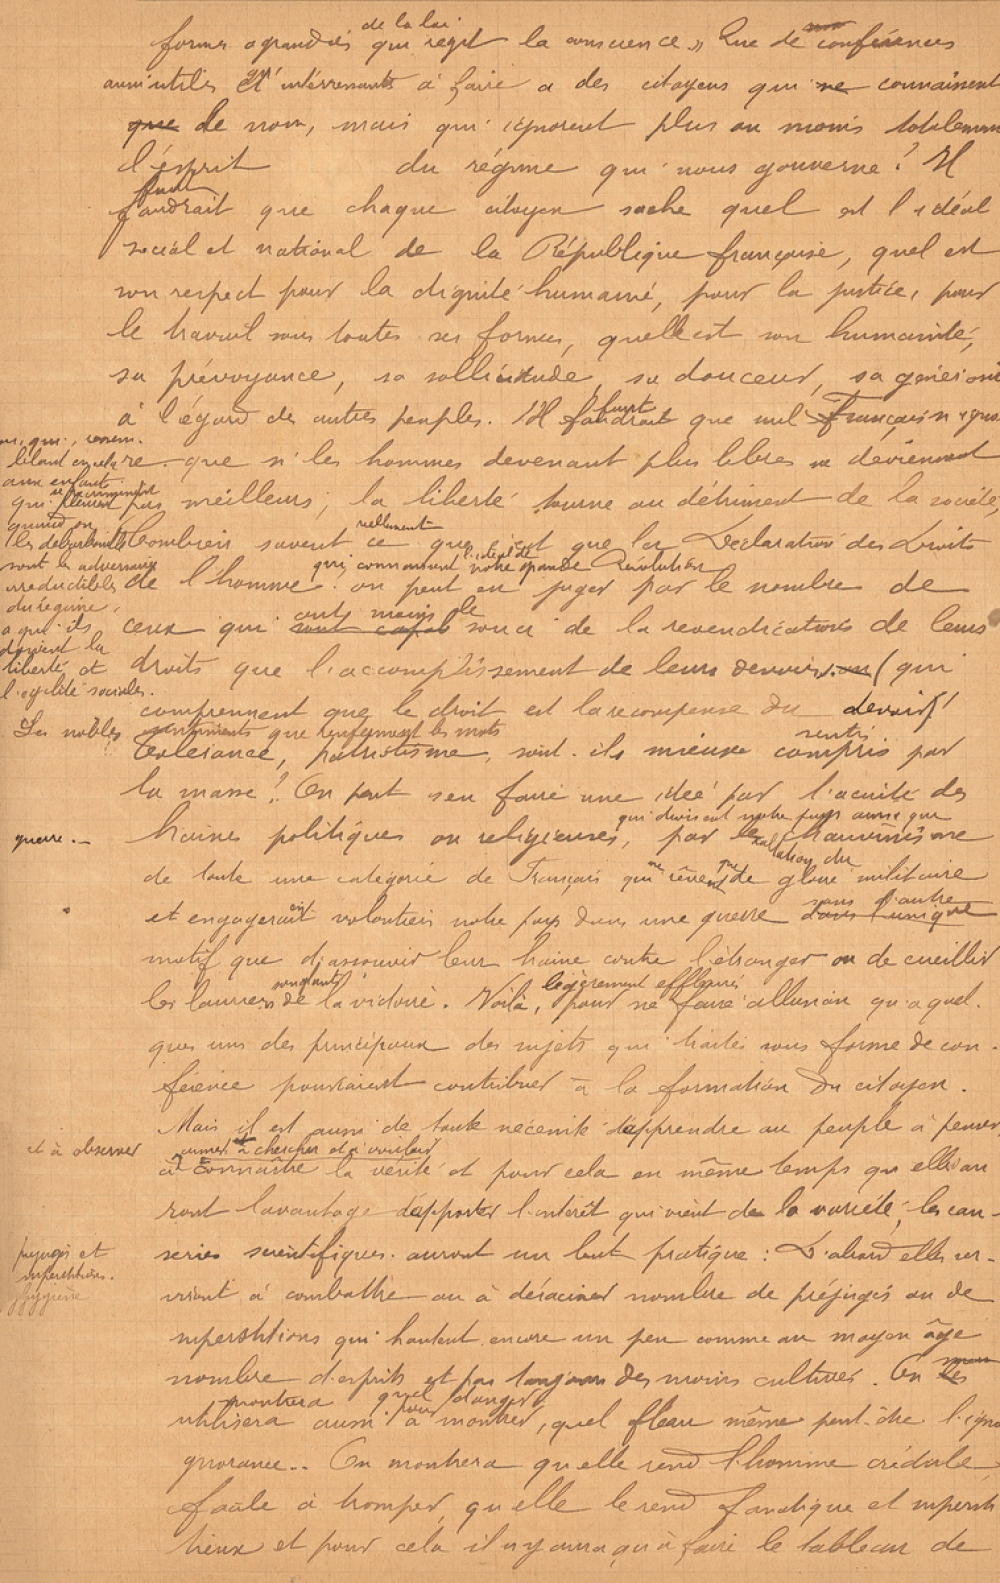 de la loi
formes agrandies qui régit la conscience » Que de conférences
aussi utiles et intérressants à faire a des citoyens qui ne connaissent
que de nom, mais qui ignorent plus ou moins totalement
l'esprit du régime qui nous gouverne ? Il
faut
faudrait que chaque citoyen sache quel est l'idéal
social et national de la République française, quel est
son respect pour la dignité humaine, pour la justice, pour
le travail sous toutes ses formes, quelle est son humanité,
sa prévoyance, sa sollicitude, sa douceur,
à l'égard des autres peuples. Il faudrait que nul Français n'igno
faut
re que si les hommes devenant plus libres ne deviennent
pas meilleurs, la liberté tourne au détriment de la société,
réellement
Combien savent ce que c'est que la Déclaration des Droits
qui connaissent l'idéal de notre grande Révolution
de l'homme. on peut en juger par le nombre de
ont moins le
ceux qui sont souci de la revendications de leurs
droits que l'accomplissement de leurs devoirs ou (qui
comprennent que le droit est la récompense du devoir)
Les nobles sentiments que renferment les mots
tolérance, patriotisme, sont-ils mieux compris par
sentis
la masse ? On peut s'en faire une idée par l'acuité des
qui divisent notre pays ainsi que
haines politiques ou religieuses, par le chauvinisme
exaltation du
guerre.-
de toute une catégorie de Français qui ne rêvent que de gloire militaire
et engageraient volontiers notre pays dans une guerre dans l'unique
sans d'autre
motif que d'assouvir leur haine contre l'étranger ou de cueillir
les lauriers de la victoire. Voilà, pour ne faire allusion qu'a quel-
sanglants
légèrement effleurés
ques uns des principaux des sujets qui traités sous forme de con-
férence pourraient contribuer à la formation du citoyen.
Mais il est aussi de toute nécessité d'apprendre au peuple à penser
et à observer
aimer à chercher et à vouloir
à connaître la vérité et pour cela en même temps qu'elles au
ront l'avantage d'apporter l'intérêt qui vient de la variété, les cau-
series scientifiques auront un but pratique : D'abord elles ser-
viront à combattre ou à déraciner nombre de préjugés ou de
superstitions qui hantent encore un peu comme au moyen âge
nombre d'esprits et pas toujours des moins cultivés. On les
montrera quel danger
utilisera aussi à montrer, quel fléau même peut-être l'igno
pour
gnorance.. On montrera qu'elle rend l'homme crédule,
facile à tromper, qu'elle le rend fanatique et supersti
tieux et pour cela il n'y aura qu'à faire le tableau de
blant en cela
aux enfants
qui
quand on
les débarbouille
sont les adversaires
irréductibles
du régime,
a qui ils
doivent la
liberté et
l'égalité sociales.
préjugés et
superstitions.
hygiène